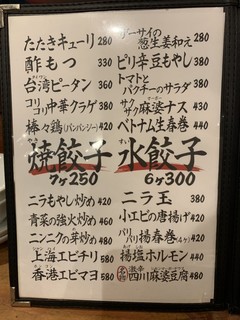 たたきキューリ 280
酢もつ 330
台湾ピータン 360
コリコリ中華クラゲ 380
棒々鶏(バンバンジー) 420
ザーサイの葱生姜和え 280
ピリ辛豆もやし 380
トマトとパクチーのサラダ 380
サクサク麻婆ナス 430
ベトナム生春巻 440
焼餃子
7ヶ250
水餃子
6ヶ300
ニラもやし炒め 420
青菜の強火炒め 480
ニンニクの芽炒め 480
上海エビチリ 580
香港エビマヨ 580
ニラ玉 380
小エビの唐揚げ 420
パリパリ揚春巻(4ヶ) 420
揚塩ホルモン 440
名物 激辛 四川麻婆豆腐 480